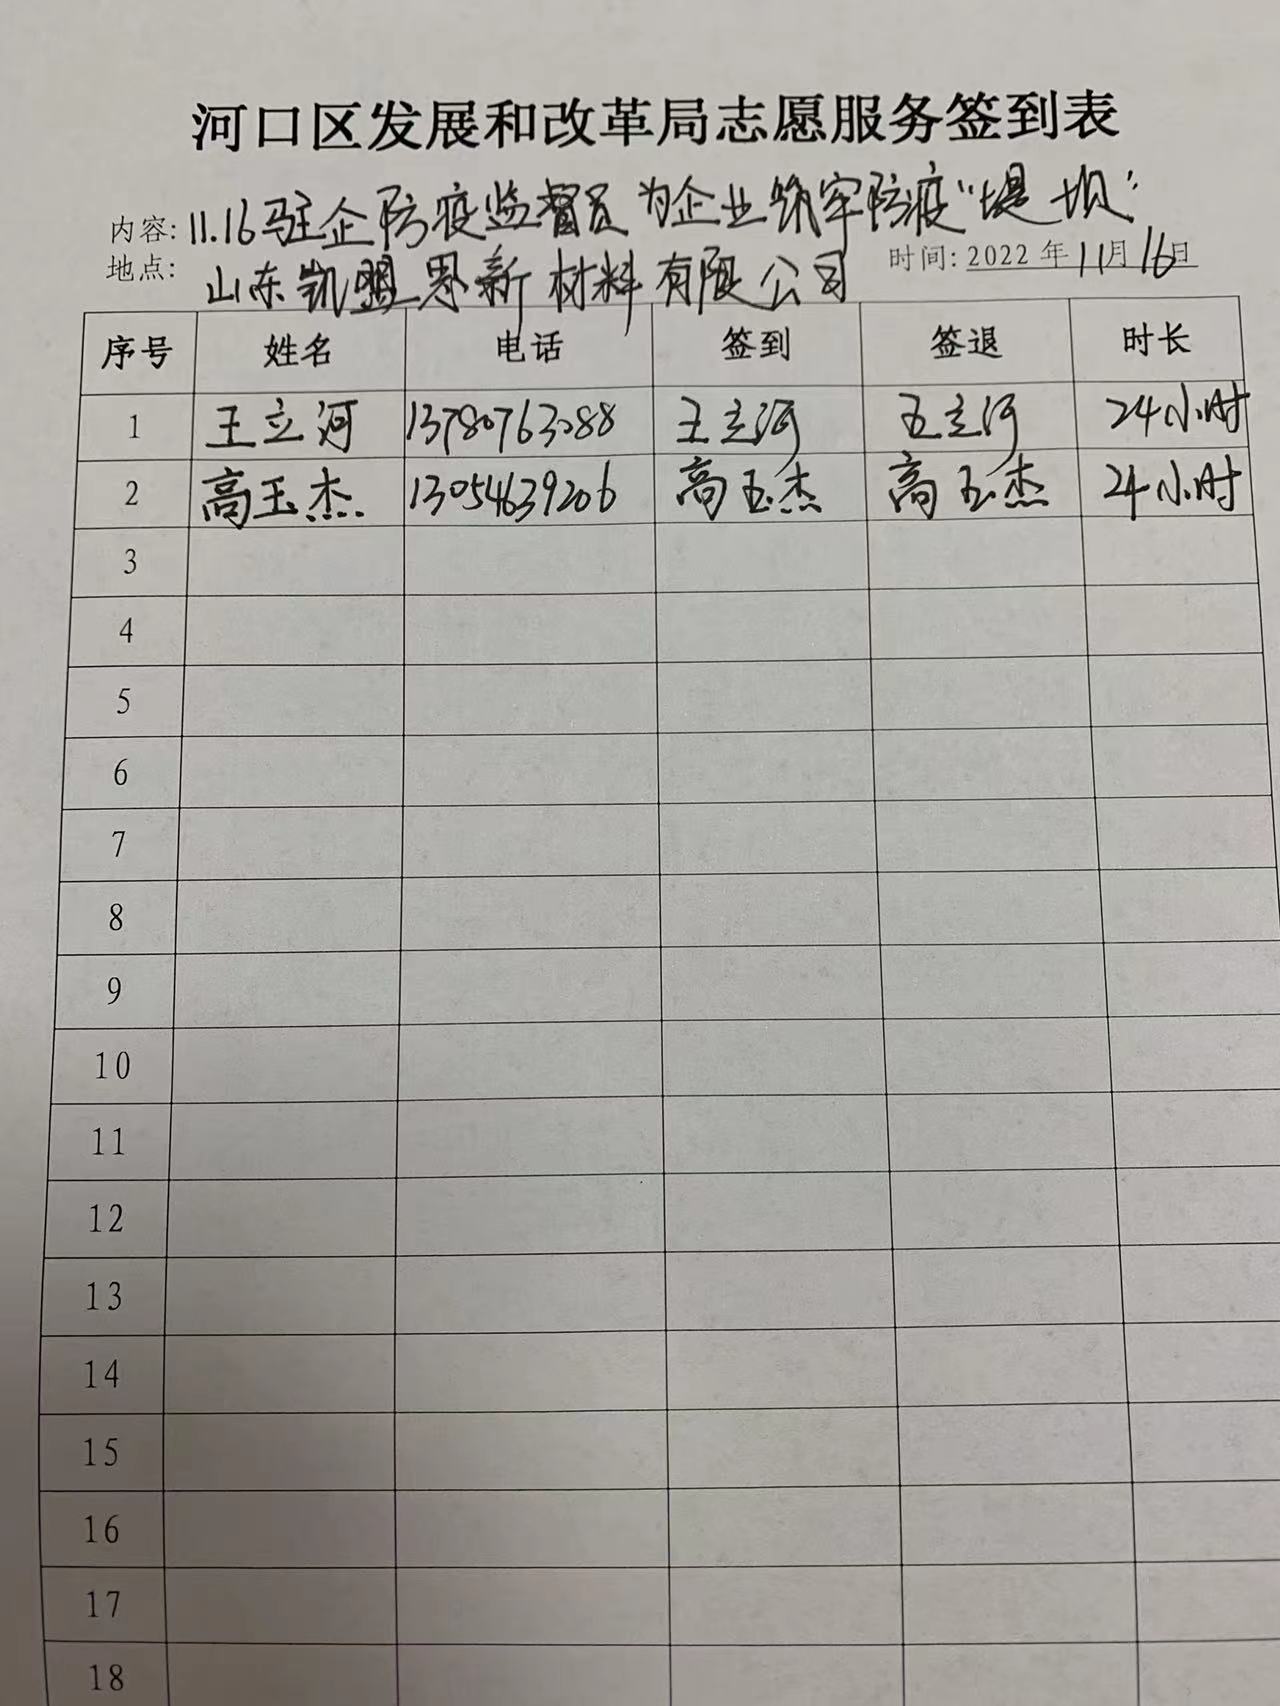 河口区发展和改革局志愿服务签到表
内容: 11.16驻企防疫监督员为企业筑牢防疫“堤坝”
地点: 山东凯盟恩新材料有限公司 时间: 2022年11月16日
序号 姓名 电话 签到 签退 时长
1 王立河 13780763088 王立河 王立河 24小时
2 高玉杰 13054639206 高玉杰 高玉杰 24小时
3
4
5
6
7
8
9
10
11
12
13
14
15
16
17
18